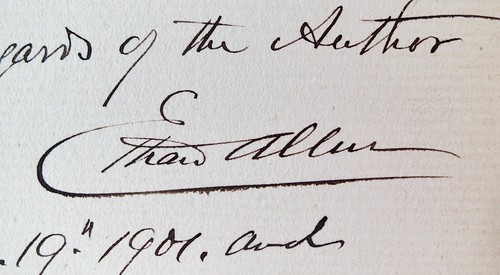 gards of the Author
Ethan Allen
. 19." 1901. and